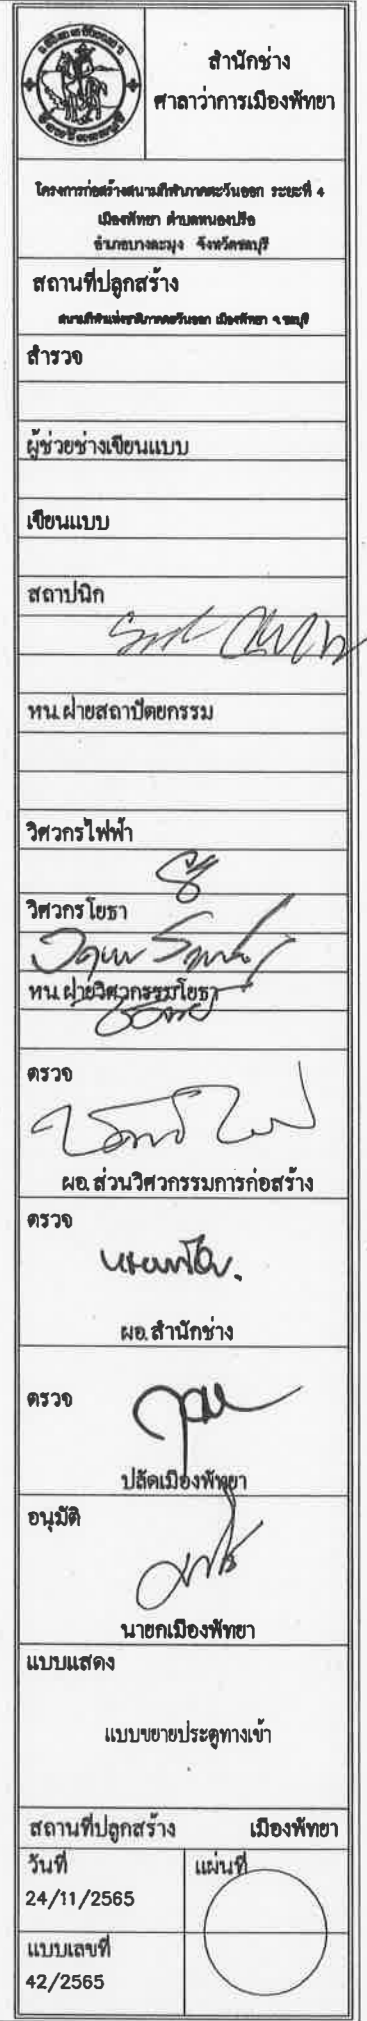 สำนักช่าง
ศาลาว่าการเมืองพัทยา
โครงการก่อสร้างสนามกีฬาภาคตะวันออก ระยะที่ 4
เมืองพัทยา ตำบลหนองปรือ
อำเภอบางละมุง จังหวัดชลบุรี
สถานที่ปลูกสร้าง
สนามกีฬาแห่งชาติภาคตะวันออก เมืองพัทยา จ.ชลบุรี
สำรวจ
ผู้ช่วยช่างเขียนแบบ
เขียนแบบ
สถาปนิก
หน.ฝ่ายสถาปัตยกรรม
วิศวกรไฟฟ้า
วิศวกรโยธา
หน.ฝ่ายวิศวกรรมโยธา
ตรวจ
ผอ.ส่วนวิศวกรรมการก่อสร้าง
ตรวจ
ผอ.สำนักช่าง
ตรวจ
ปลัดเมืองพัทยา
อนุมัติ
นายกเมืองพัทยา
แบบแสดง
แบบขยายประตูทางเข้า
สถานที่ปลูกสร้าง เมืองพัทยา
วันที่ แผ่นที่
24/11/2565
แบบเลขที่
42/2565